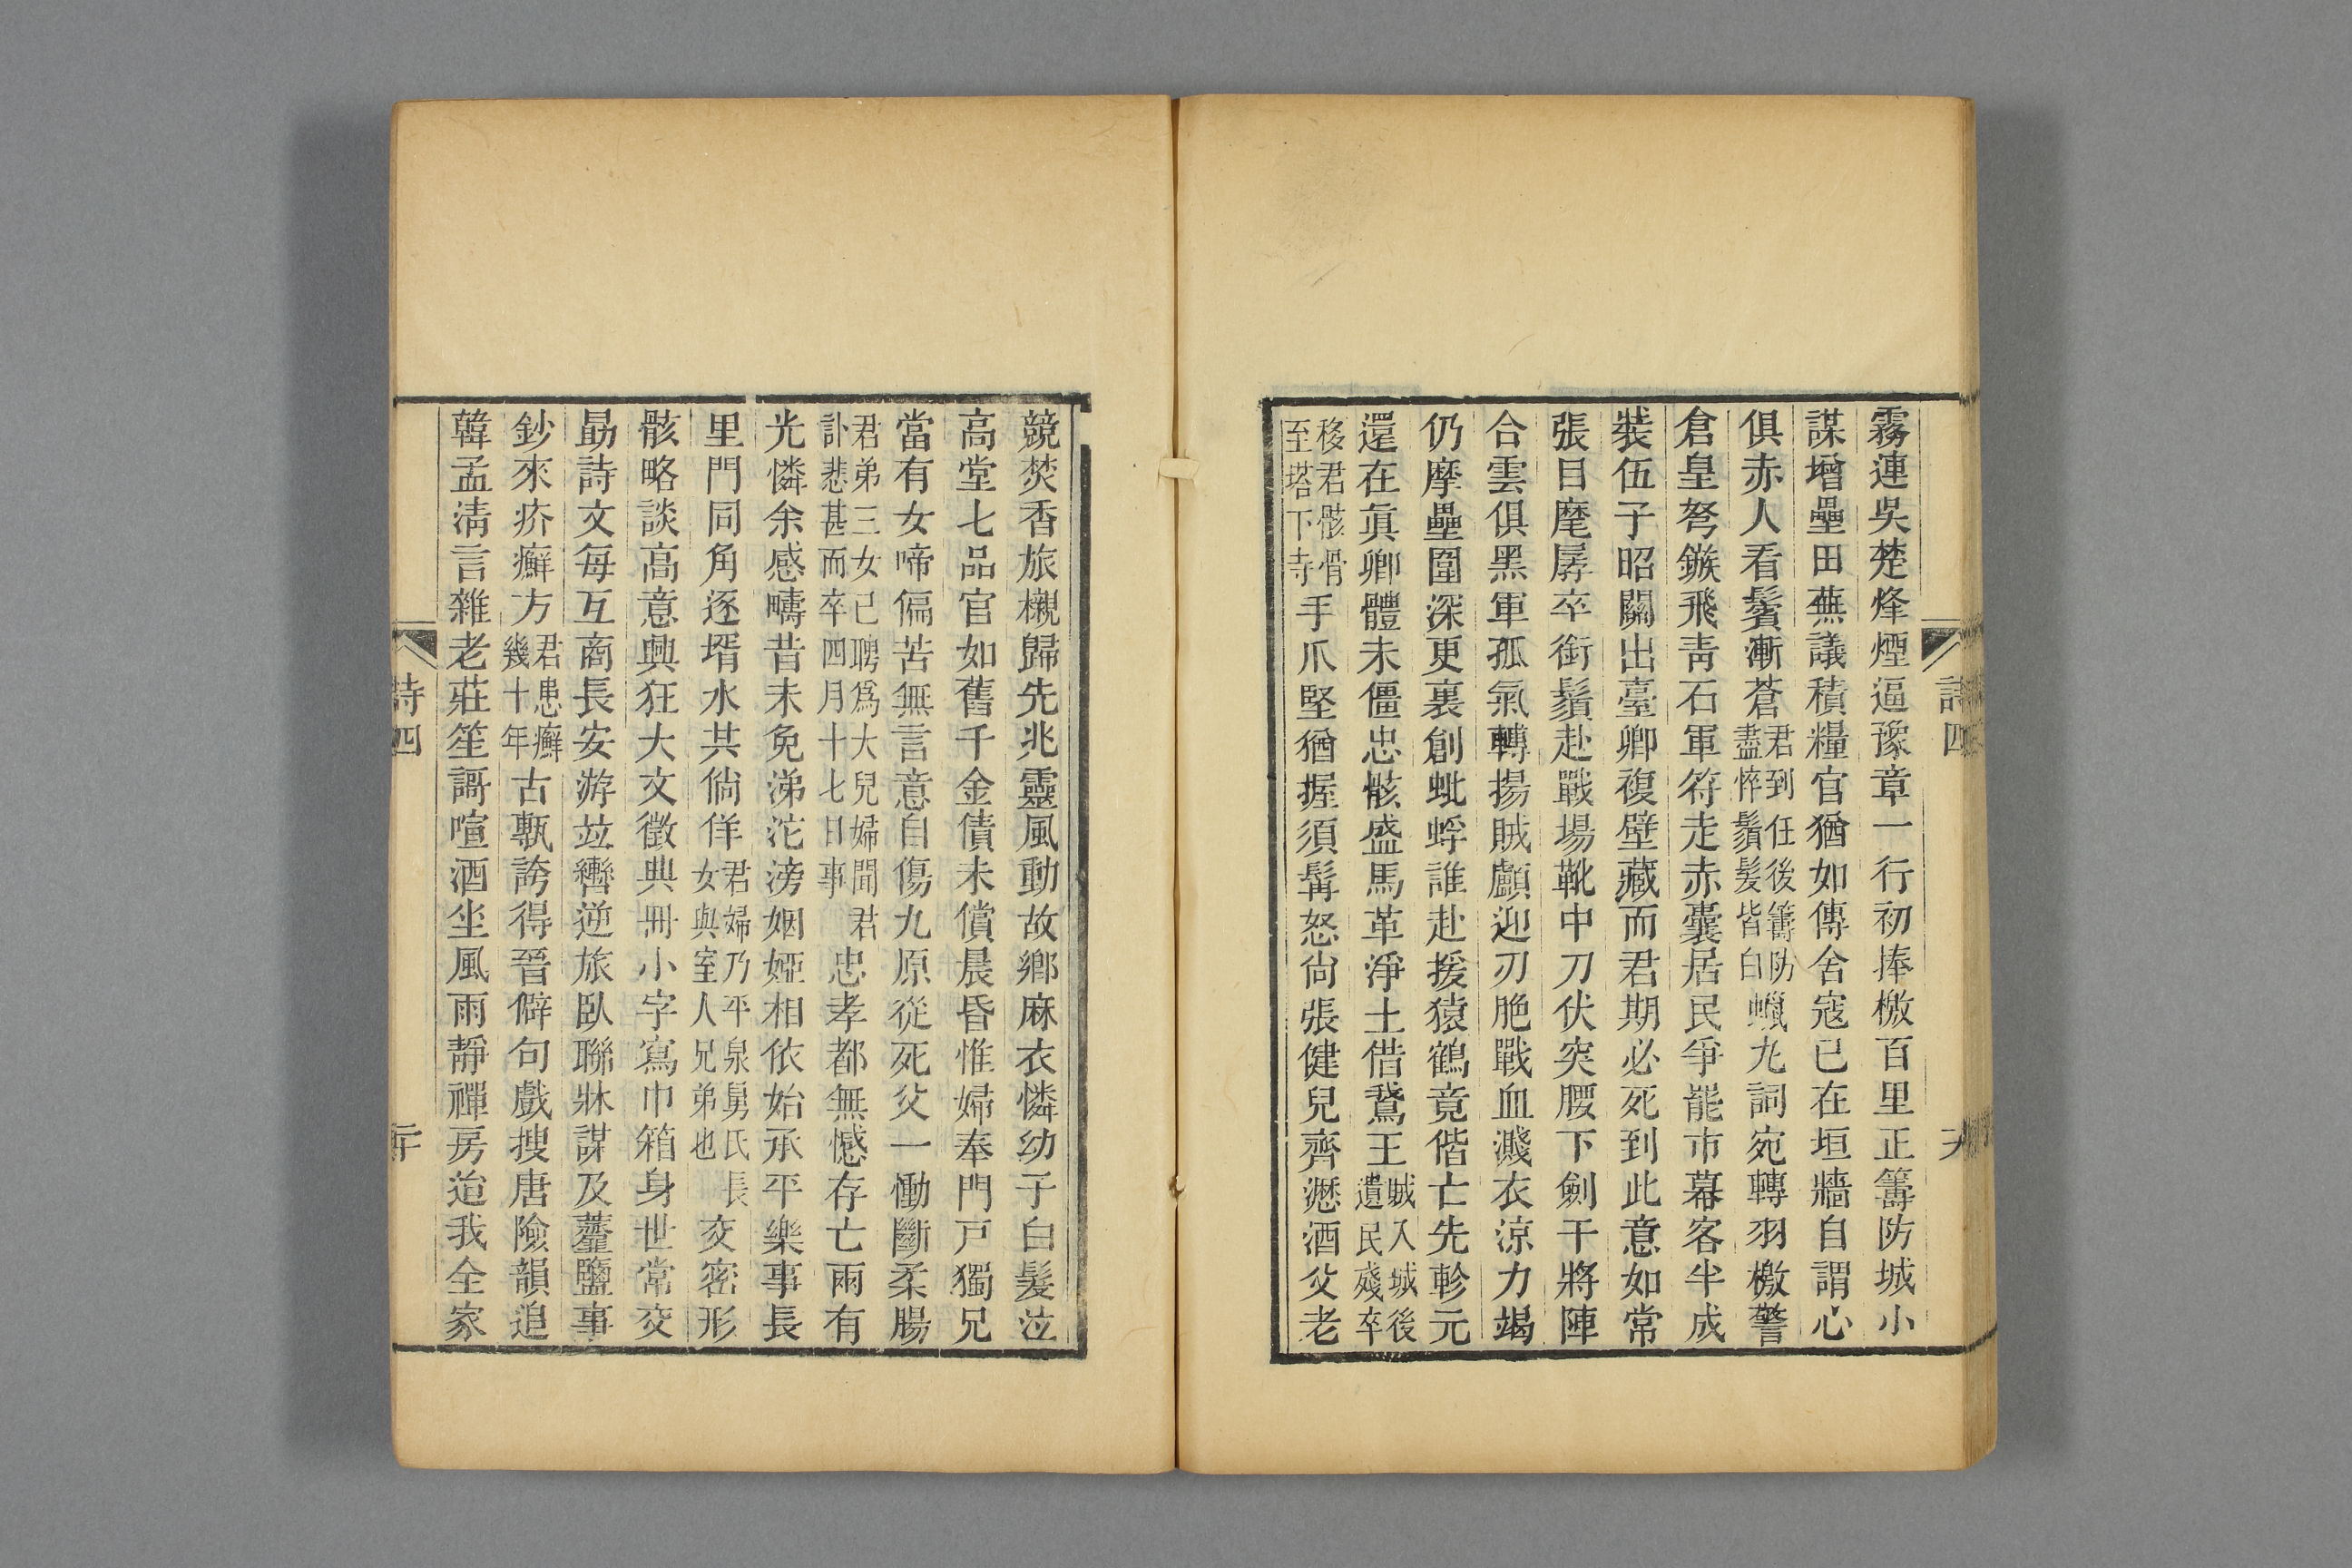 霧連吳楚烽煙逼豫章一行初捧檄百里正籌防城小
謀增壘田蕪議積糧官猶如傳舍寇已在垣牆自謂心
俱赤人看鬢漸蒼君到任後籌防盡悴鬚髮皆白蠟丸詞宛轉羽檄警
倉皇弩鏃飛靑石軍符走赤囊居民爭罷市幕客半成
裝伍子昭關出臺卿複壁藏而君期必死到此意如常
張目麾孱卒銜鬚赴戰場靴中刀伏突腰下劍干將陣
合雲俱黑軍孤氣轉揚賊顱迎刃脆戰血濺衣涼力竭
仍摩壘圍深更裹創蚍蜉誰赴援猿鶴竟偕亡先軫元
還在眞卿體未僵忠骸盛馬革淨土借鵞王賊入城後遺民殘卒
移君骸骨至塔下寺手爪堅猶握須髯怒尙張健兒齊瀝酒父老
詩四
競焚香旅櫬歸先兆靈風動故鄉麻衣憐幼子白髮泣
高堂七品官如舊千金債未償晨昏惟婦奉門戸獨兄
當有女啼偏苦無言意自傷九原從死父一慟斷柔腸
君弟三女已聘爲大兒婦聞君訃悲甚而卒四月十七日事忠孝都無憾存亡兩有
光憐余感疇昔未免涕沱滂姻婭相依始承平樂事長
里門同角逐壻水共倘佯君婦乃平泉舅氏長女與室人兄弟也交密形
骸略談高意興狂大文徵典冊小字寫巾箱身世常交
勗詩文每互商長安游竝轡逆旅臥聯牀謀及虀鹽事
鈔來疥癬方君患癬幾十年古甎誇得晉僻句戲搜唐險韻追
韓孟淸言雜老莊笙謌喧酒坐風雨靜禪房迨我全家
詩四
二十